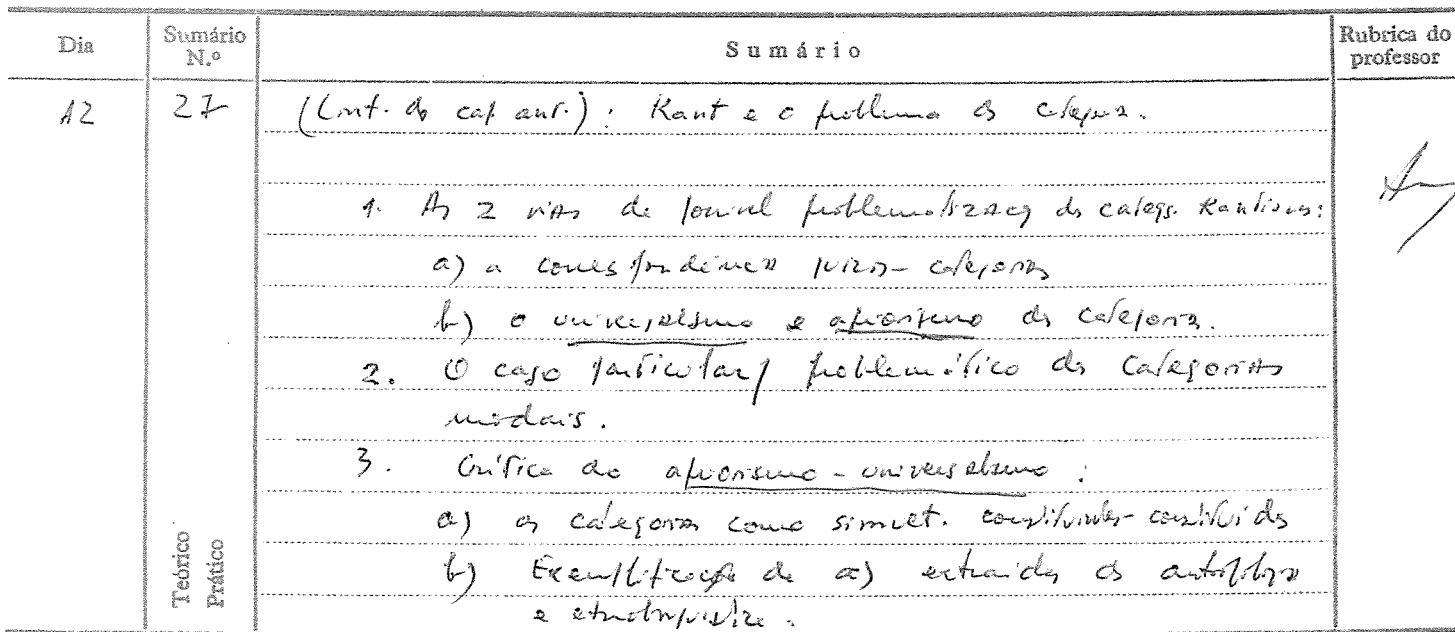 Dia Sumário N.º Sumário Rubrica do professor
12 27 (Cont. do cap. ant.): Kant e o problema das categorias.
1. As 2 vias de possível problematização das categs. Kantianas:
a) a correspondência juízos-categorias
b) o universalismo e apriorismo das categorias.
2. O caso particular/ problemático das categorias
modais.
3. Crítica do apriorismo-universalismo:
a) as categorias como simult. constituintes-constituídas
b) Exemplificação de a) extraída da
e etnolinguística.
Teórico
Prático